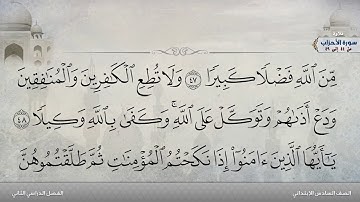 تلاوة
سورة الأحزاب
من ٤١ إلى ٤٩
مِّنَ ٱللَّهِ فَضْلًا كَبِيرًا ٤٧ وَلَا تُطِعِ ٱلْكَٰفِرِينَ وَٱلْمُنَٰفِقِينَ
وَدَعْ أَذَىٰهُمْ وَتَوَكَّلْ عَلَى ٱللَّهِ ۚ وَكَفَىٰ بِٱللَّهِ وَكِيلًا ٤٨
يَٰٓأَيُّهَا ٱلَّذِينَ ءَامَنُوٓا۟ إِذَا نَكَحْتُمُ ٱلْمُؤْمِنَٰتِ ثُمَّ طَلَّقْتُمُوهُنَّ
الصف السادس الابتدائي
الفصل الدراسي الثاني